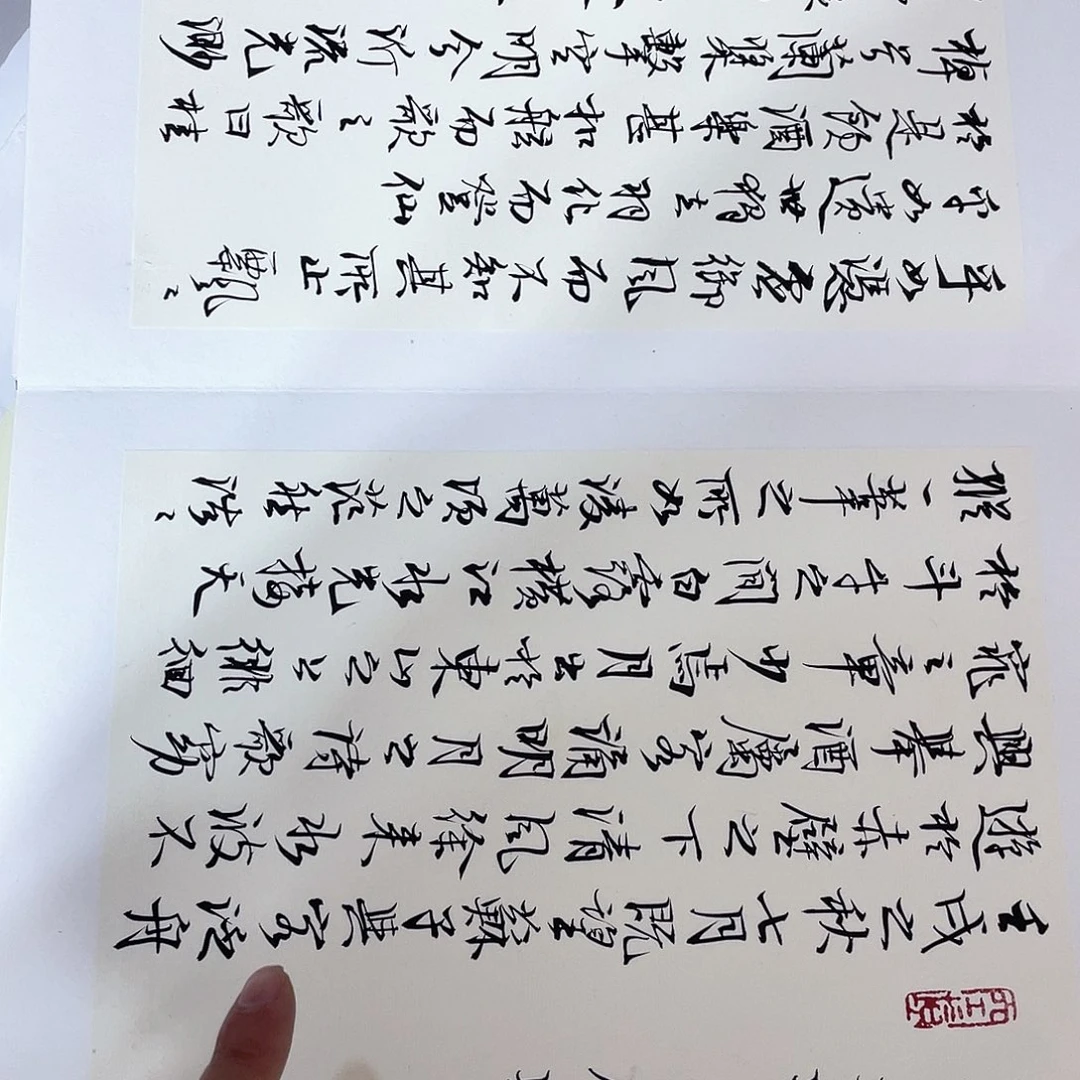 壬戌之秋七月既望蘇子與客泛舟
遊於赤壁之下清風徐来水波不
興舉酒屬客誦明月之詩歌窈
窕之章少焉月出於東山之上徘徊
於斗牛之間白露橫江水光接天
縱一葦之所如凌萬頃之茫然浩〻
乎如馮虛御風而不知其所止飄〻
乎如遺世獨立羽化而登仙
於是飲酒樂甚扣舷而歌之歌曰桂
棹兮蘭槳擊空明兮泝流光渺